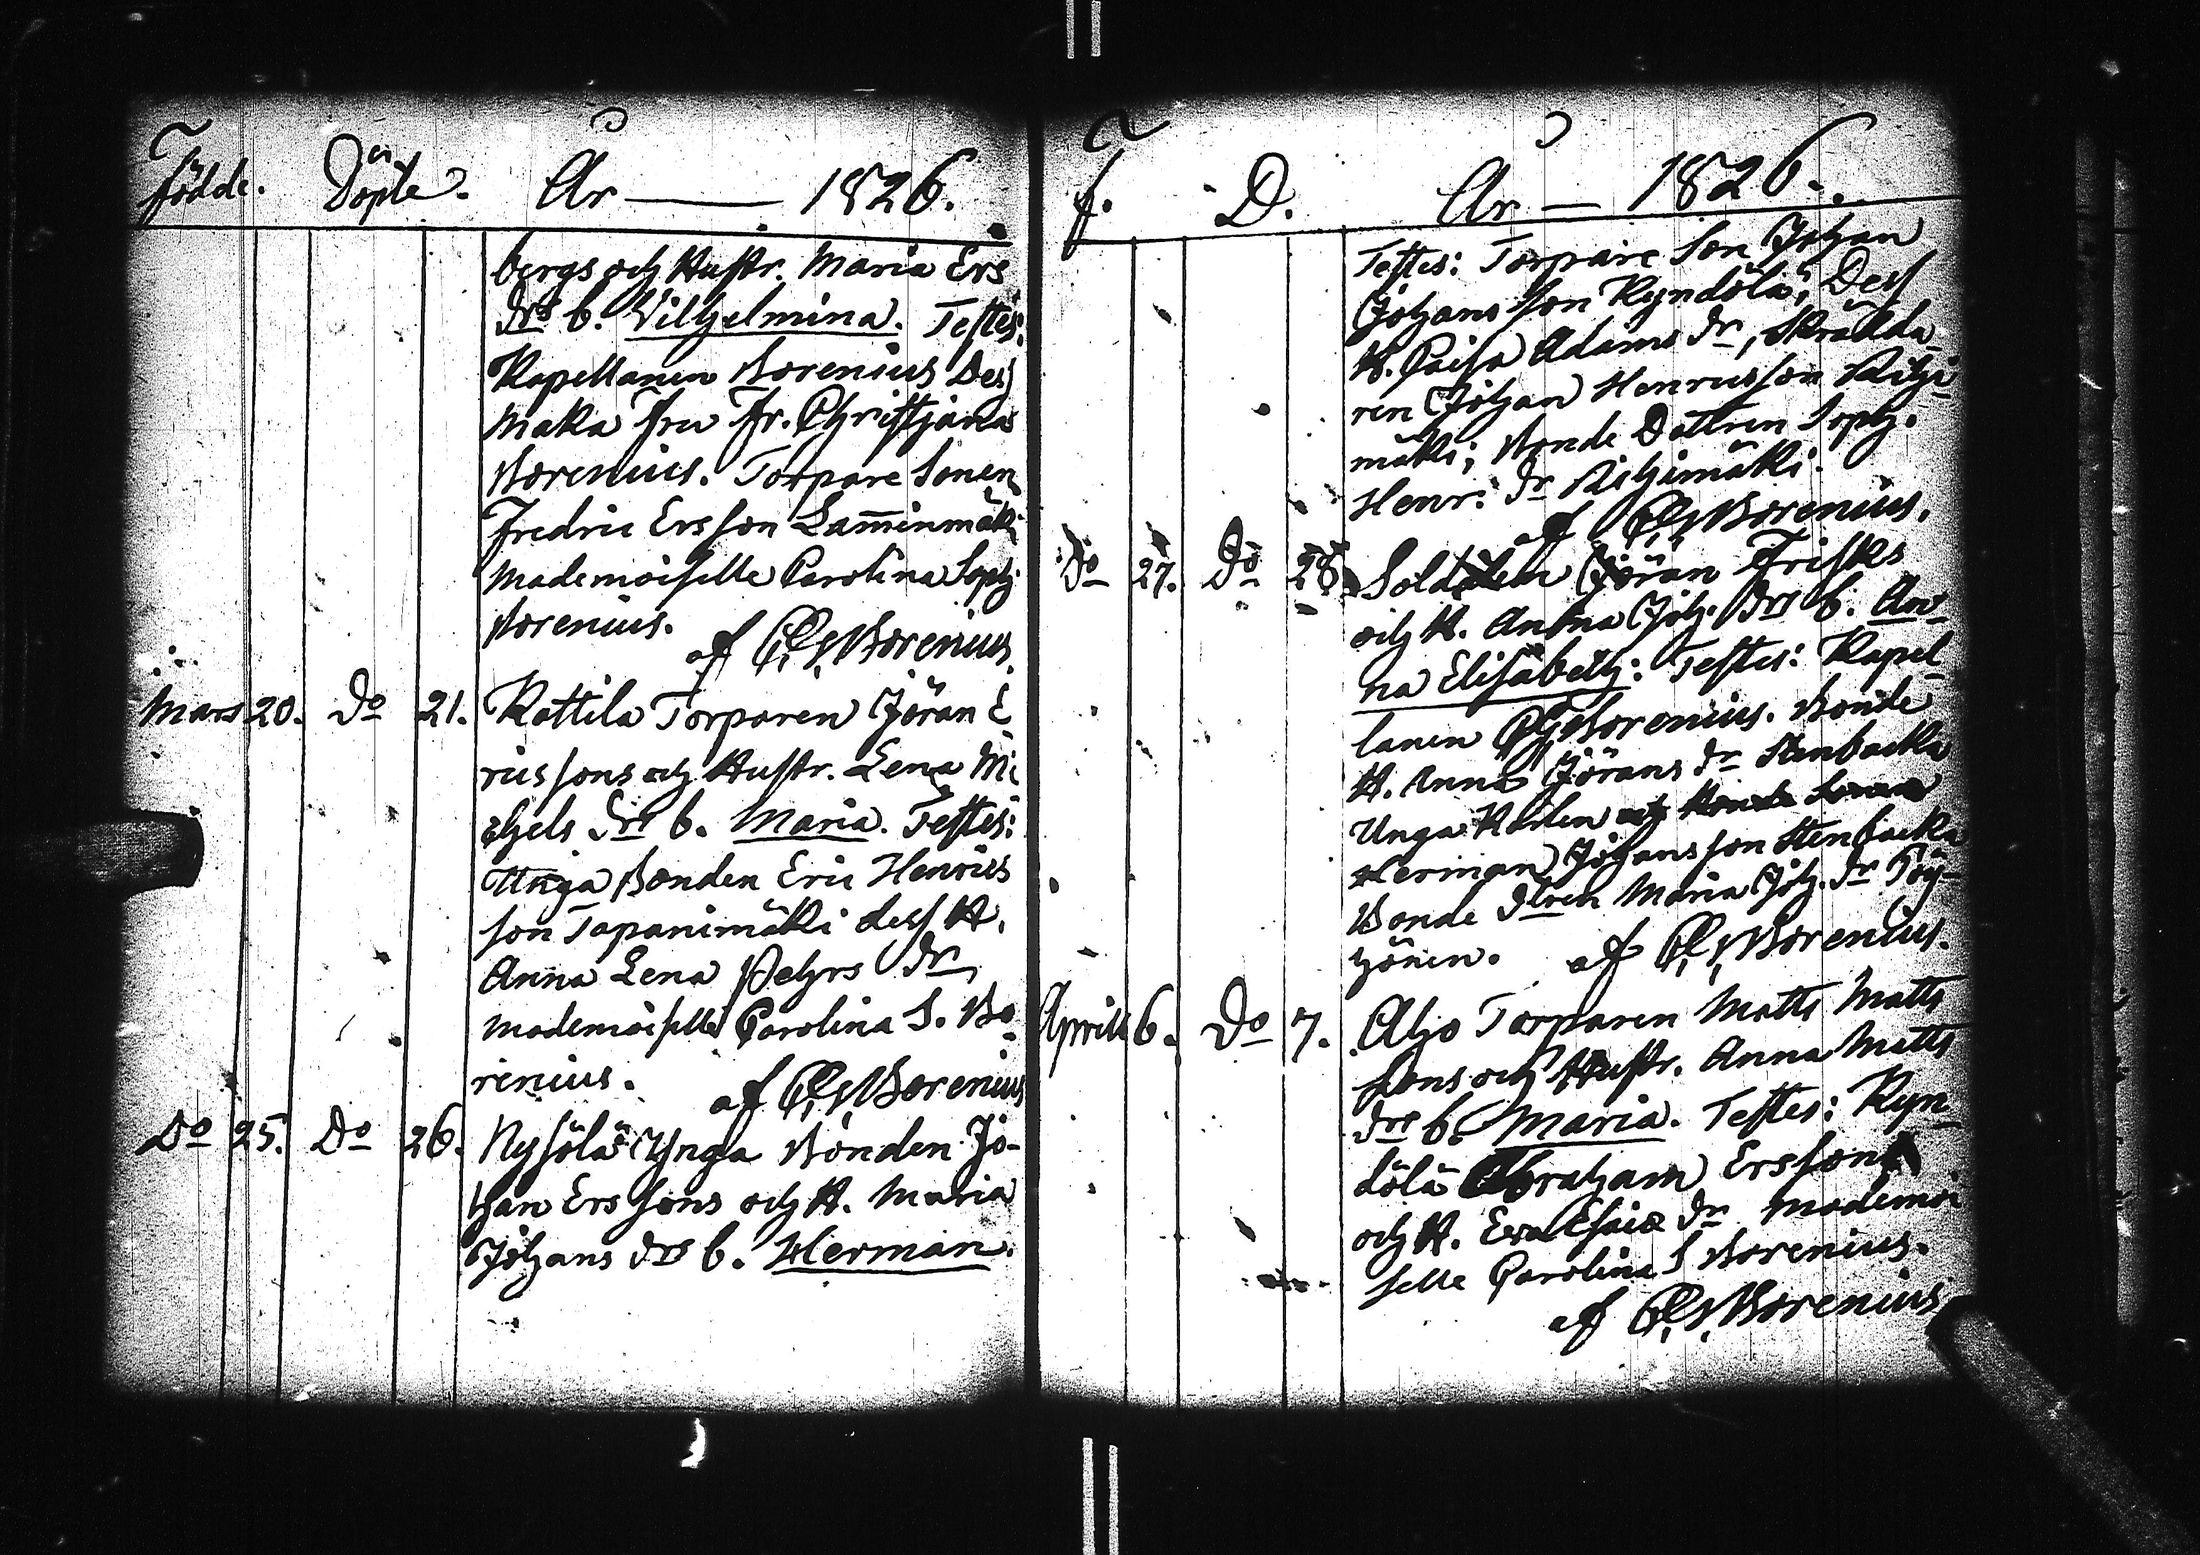 Födde. Döpte. År — 1826.
bergs och Hustr. Maria Ers
drs b. Vilhelmina. Testes:
Kapellanen Borenius Dess
Maka Fru Fr. Christjana
Borenius. Torpare Sonen
Fredric Ersson Lam̄inmäki
Mademoiselle Carolina Soph.
Borenius.
af Borenius.
Mars 20. Do 21. Kattila Torparen Jöran E
ricssons och Hustr. Lena Mi
chels drs b. Maria. Testes:
Unga Bonden Eric Henrics
son Tapanimäki dess H.
Anna Lena Pehrs dr
Mademoiselle Carolina S. Bo-
renius.
af Borenius
Do 25. Do 26. Nysölä Ynga Bonden Jo-
han Ers sons och H. Maria
Johans drs b. Herman.
f. D. År — 1826.
Testes: Torpare Son Johan
Johans son Ryndölä, Dess
H. Caisa Adams dr, Skrädda-
ren Johan Henricsson Riihi-
mäki; Bonde Dottren Soph.
Henr. dr Riihimäki.
af Borenius.
Do 27. Do 28. Soldaten Jöran Friskes
och H. Anna Joh. drs b. An-
na Elisabeth: Testes: Kapel
lanen Borenius. Bonde
H. Anna Jörans dr Stenbacka
Unga Karlen
Herman Johansson Stenbacka
Bonde dtren Maria Joh. dr Pöy-
hönen. af Borenius.
Aprill 6. Do 7. Aho Torparen Matts Matts
sons och Hustr. Anna Matts
drs b. Maria. Testes: Ryn-
dölä Abraham Ersson
och H. Eva Esaie dr Mademoi
selle Carolina S Borenius.
af Borenius